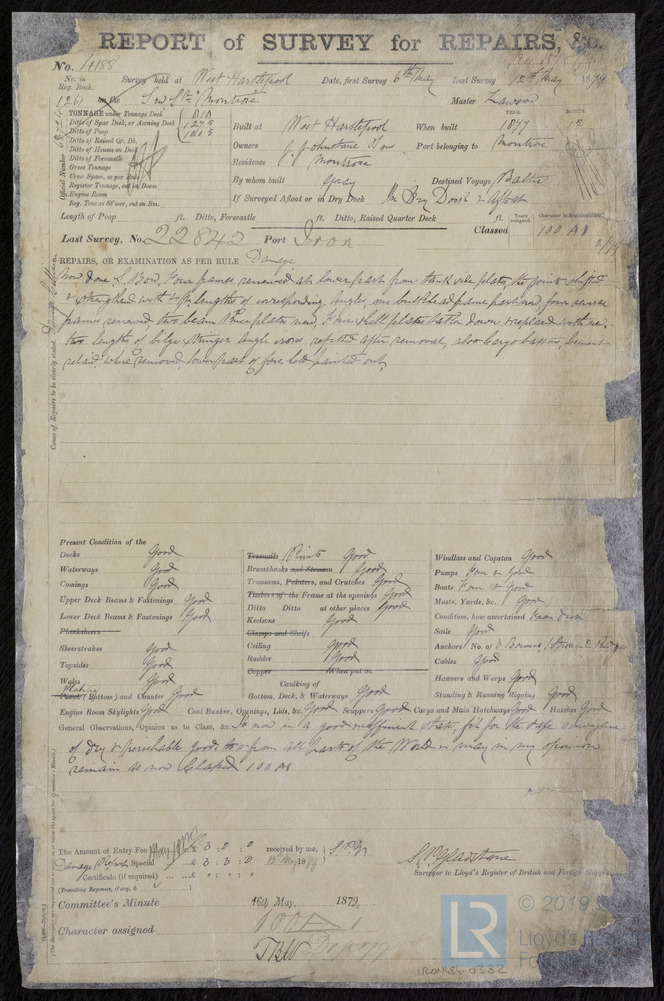 REPORT of SURVEY for REPAIRS, &c.
No. 14188
No. in Reg. Book. Survey held at West Hartlepool Date, first Survey 6th May Last Survey 12th May 1879
1261 on the Montrose Master Lawson
TONNAGE under Tonnage Deck
Ditto of Spar Deck, or Awning Deck
Ditto of Poop
Ditto of Raised Qr. Dk.
Ditto of Houses on Deck
Ditto of Forecastle
Gross Tonnage
Crew Space, as per Rule
Register Tonnage, cut on House
Engine Room
Reg. Tons as St'mr, cut on Bm.
Official Number
YEAR. MONTH.
Built at West Hartlepool When built 1877 12
Owners J. Johnstone & Sons Port belonging to Montrose
Residence Montrose
By whom built Gray Destined Voyage Baltic
If Surveyed Afloat or in Dry Dock In Dry Dock & Afloat
Length of Poop ft. Ditto, Forecastle ft. Ditto, Raised Quarter Deck ft.
Years assigned.
Last Survey, No. 22842 Port Iron Classed 100 A1
REPAIRS, OR EXAMINATION AS PER RULE Damage
Cause of Repairs to be clearly stated.
Now done S. Bow, Four frames renewed at lower part from tank side plate, the joints shifted
& strengthed with 4 ft lengths of corresponding angle, one bulkhead frame part new, four reverse
frames renewed, two beam knee plates new, Four shell plates taken down & replaced with new
two lengths of bilge stringer angle irons refitted after removal, also cargo battens, cement
relaid where removed, lower part of fore hold painted out.
Present Condition of the
Decks Good
Waterways Good
Comings Good
Upper Deck Beams & Fastenings Good
Lower Deck Beams & Fastenings Good
Planksheers
Sheerstrakes Good
Topsides Good
Wales Good
Plating (Bottom) and Counter Good
Treenails Rivets Good
Breasthooks and Stemson Good
Transoms, Pointers, and Crutches Good
Timbers of the Frame at the openings Good
Ditto Ditto at other places Good
Keelsons Good
Clamps and Shelfs
Ceiling Good
Rudder Good
Copper When put on
Caulking of
Bottom, Deck, & Waterways Good
Windlass and Capstan Good
Pumps Four in Good
Boats Four & Good
Masts, Yards, &c. Good
Condition, how ascertained from deck
Sails Good
Anchors No. of 3 Bowers, 1 Stream 2 Kedge
Cables Good
Hawsers and Warps Good
Standing & Running Rigging Good
Engine Room Skylights Good Coal Bunker, Openings, Lids, &c. Good Scuppers Good Cargo and Main Hatchways Good Hatches Good
General Observations, Opinion as to Class, &c. is now in a good & efficient state, fit for the safe conveyance
of Dry & perishable goods to & from all parts of the World & may in my opinion
remain as now Classed 100 A1
The Amount of Entry Fee £ 3 : 0 : 0 received by me,
Damage Repair Special £ 3 : 3 : 0 15 May 1879
Certificate (if required) £ 0 : 0 : 0
(Travelling Expenses, if any, £ )
Surveyor to Lloyd's Register of British and Foreign
Committee's Minute 16th May, 1879,
Character assigned 100 A 1
LR
© 2019
Lloyd's
IRON484-0332